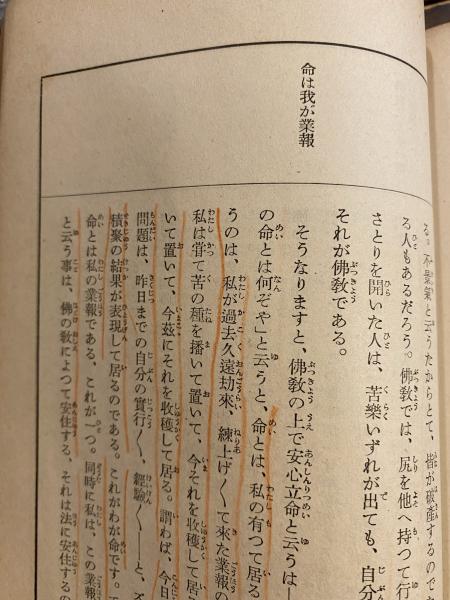 命は我が業報
る。不景氣と云うたからとて、皆が破產するので
る人もあるだろう。佛教では、尻を他へ持つて行
さとりを開いた人は、苦樂いずれが出ても、自分
それが佛教である。
そうなりますと、佛教の上で安心立命と云うは―
の命とは何ぞや」と云うと、命とは、私の有つて居る
うのは、私が過去久遠劫來、練上げ〱て來た業報の
私は嘗て苦の種を播いて置いて、今それを收穫して居
いて置いて、今茲にそれを收穫して居る。謂わば、今日
問題は、昨日までの自分の實行〱、經驗〱―と、
積聚の結果が表現して居るのである。これがわが命です。
命とは私の業報である、これが一つ。同時に私は、この業報
と云う事は、佛の敎によつて安住する、それは法に安住する